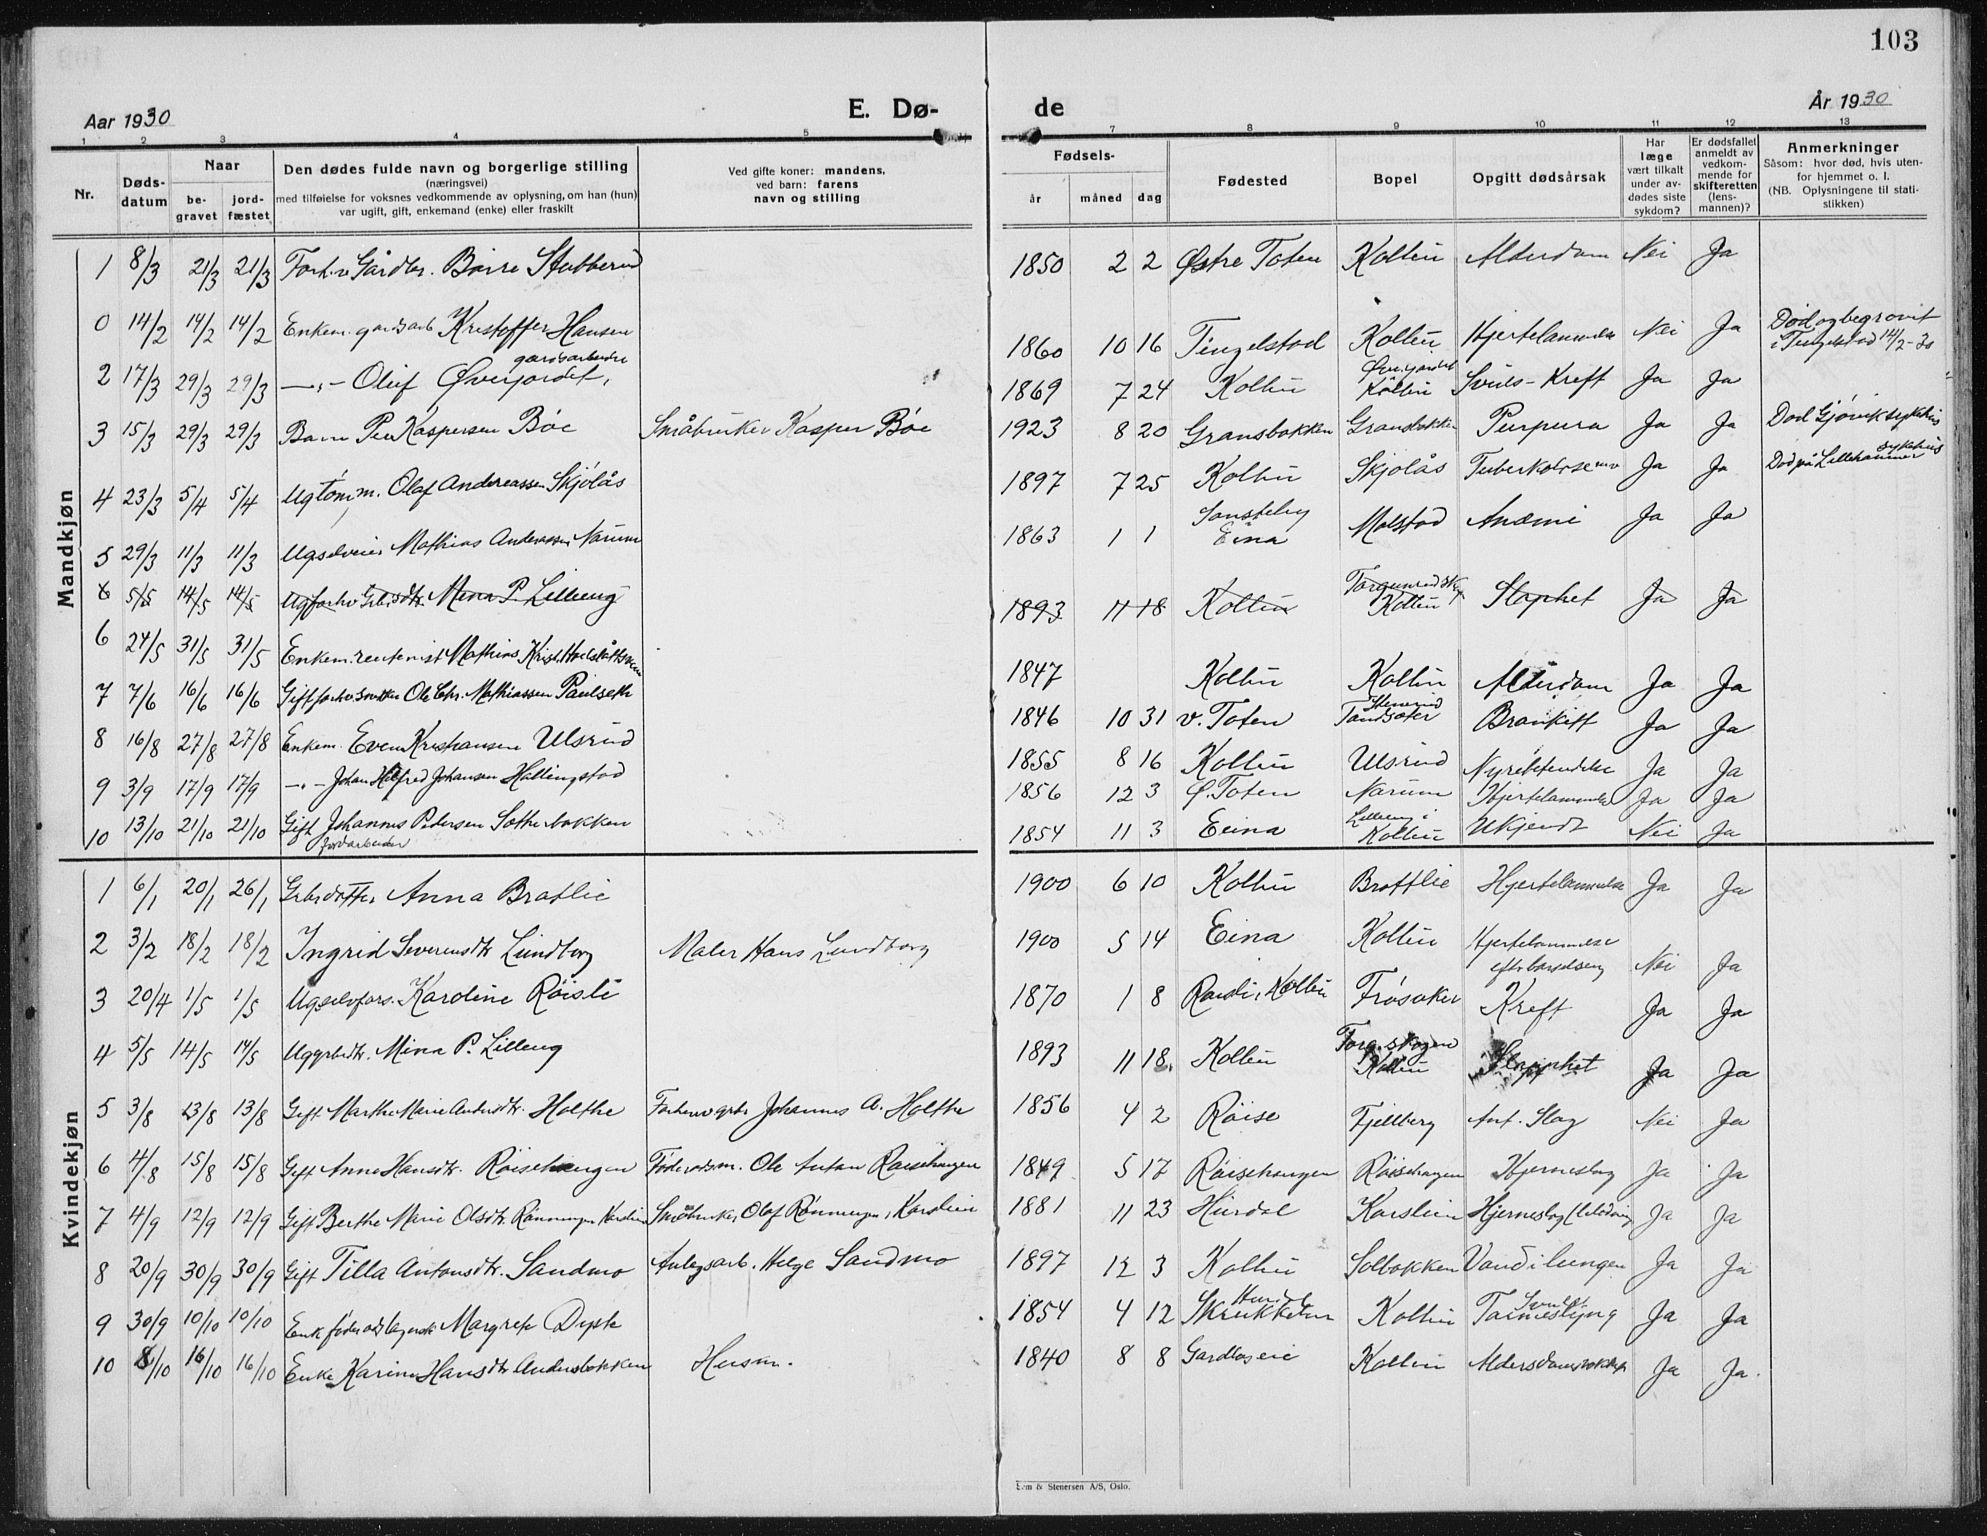 103
Aar 1930
E. Dø-
de
År 1930
1 2 3 4 5
7 8 9 10 11 12 13
Nr.
Døds-
datum
Naar
be-
gravet
jord-
fæstet
Den dødes fulde navn og borgerlige stilling
(næringsvei)
med tilføielse for voksnes vedkommende av oplysning, om han (hun)
var ugift, gift, enkemand (enke) eller fraskilt
Ved gifte koner: mandens,
ved barn: farens
navn og stilling
Fødsels-
år måned dag
Fødested
Bopel
Opgitt dødsårsak
Har
læge
vært tilkalt
under av-
dødes siste
sykdom?
Er dødsfallet
anmeldt av
vedkom-
mende for
skifteretten
(lens-
mannen)?
Anmerkninger
Såsom: hvor død, hvis uten-
for hjemmet o. l.
(NB. Oplysningene til stati-
stikken)
Mandkjøn
1 8/3 21/3 21/3 Forh.v Gårdbr. Børre Stubberud 1850 2 2 Østre Toten Kolbu Alderdom Nei Ja
0 14/2 14/2 14/2 Enkem. gardsarb Kristoffer Hansen 1860 10 16 Tingelstad Kolbu Hjertelammelse Nei Ja Død og begravit
i Tingelstad 14/2-30
2 17/3 29/3 29/3 —"— Oluf Øverjordet, gardsarbeider 1869 7 24 Kolbu Kolbu Kreft Ja Ja
3 15/3 29/3 29/3 Barn Per Kaspersen Bøe Småbruker Kasper Bøe 1923 8 20 Gransbakken Gransbakken Purpura Ja Ja Død Gjøvik sykehus
4 23/3 5/4 5/4 Ug tømm. Olaf Andreassen Skjølås 1897 7 25 Kolbu Skjolås Ja Ja Død på Lillehammer sykehus
5 29/3 11/3 11/3 Mathias Anderssen Narum 1863 1 1 Eina Molstad Anæmi Ja Ja
8 5/5 14/5 14/5 Mina P. Lilleeng 1893 11 18 Kolbu Kolbu Slaphet Ja Ja
6 24/5 31/5 31/5 Enkem. rentenist Mathias Krist. 1847 Kolbu Kolbu Alderdom Ja Ja
7 7/6 16/6 16/6 Gift forhv. Ole Chr. Mathiassen Paulseth 1846 10 31 v. Toten Ja Ja
8 16/8 27/8 27/8 Enkem. Even Kristiansen Ulsrud 1855 8 16 Kolbu Ulsrud Ja Ja
9 3/9 17/9 17/9 —"— Johan Johansen Hallingstad 1856 12 3 Ø. Toten Narum Hjertelammelse Ja Ja
10 13/10 21/10 21/10 Gift Johannes Pedersen 1854 11 3 Eina Lilleeng i
Kolbu Ukjendt Nei Ja
Kvindekjøn
1 6/1 20/1 26/1 Grbrdatter Anna Bratlie 1900 6 10 Kolbu Brattlie Hjertelammelse Ja Ja
2 3/2 18/2 18/2 Ingrid Severinsdtr Lundborg Maler Hans Lundborg 1900 5 14 Eina Kolbu Hjertelammelse
efter barselseng Nei Ja
3 20/4 1/5 1/5 Karoline Røisli 1870 1 8 Kolbu Frøsaker Kreft Ja Ja
4 5/5 14/5 14/5 Mina P. Lilleeng 1893 11 18 Kolbu Torg.skogen
Kolbu Slapphet Ja Ja
5 3/8 13/8 13/8 Gift Marthe Marie Andersdtr. Holthe Johannes A. Holthe 1856 4 2 Røise Fjellberg Ant. Slag Nei Ja
6 4/8 15/8 15/8 Gift Anne Hansdtr. Røisehaugen Føderådsm. Ole Anton Røisehaugen 1849 5 17 Røisehaugen Røisehaugen Hjerneslag Ja Ja
7 4/9 12/9 12/9 Gift Berthe Marie Olsdtr. Rønningen Småbruker Olof Rønningen, 1881 11 23 Hurdal Hjerneslag Ja Ja
8 20/9 30/9 30/9 Gift Tilla Antonsdtr. Sandmo Anlegsarb. Helge Sandmo 1897 12 3 Kolbu Solbakken Vand i lungen Ja Ja
9 30/9 10/10 10/10 Enk Margrete Dyste 1854 4 12 Kolbu Ja Ja
10 8/10 16/10 16/10 Enke Karine Hansdtr Andersbakken Husm. 1840 8 8 Kolbu Ja Ja
& Stenersen A/S, Oslo.